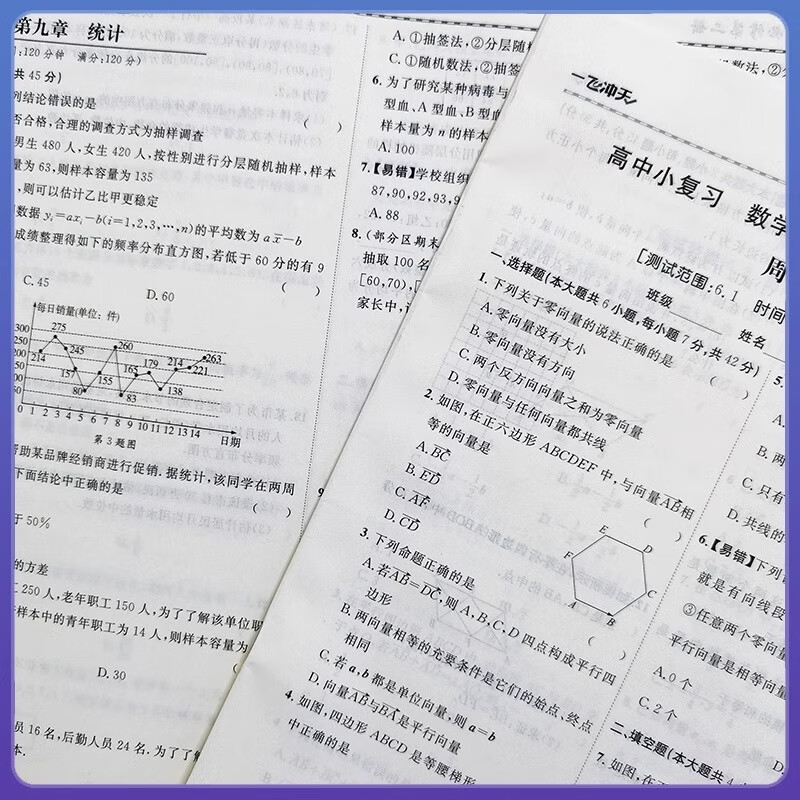 第九章 统计
120分钟 满分:120分)
共45分)
列结论错误的是
否合格,合理的调查方式为抽样调查
男生480人,女生420人,按性别进行分层随机抽样,样本
量为63,则样本容量为135
,则可以估计乙比甲更稳定
数据 yᵢ=axᵢ-b(i=1,2,3,…,n)的平均数为 ax̄-b
成绩整理得如下的频率分布直方图,若低于60分的有9
( )
C. 45 D. 60
每日销量(单位:件)
300
250
200
150
100
50
214 275 245 157 80 155 260 83 165 179 138 214 221 263
0 1 2 3 4 5 6 7 8 9 10 11 12 13 14 日期
第3题图
帮助某品牌经销商进行促销.据统计,该同学在两周
下面结论中正确的是 ( )
于50%
的方差
工250人,老年职工150人,为了了解该单位职
样本中的青年职工为14人,则样本容量为
D. 30
员16名,后勤人员24名.为了了解
本.
A. ①抽签法,②分层随机
C. ①随机数法,②抽签
6. 为了研究某种病毒与
型血、A型血、B型血
样本量为n的样本
A. 100
7.【易错】学校组织
87,90,92,93,9
A. 88
8. (部分区期末
抽取100名
[60,70),[
家长中,
一飞冲天
高中小复习 数学
周
[测试范围:6.1 时间
班级 姓名
一、选择题(本大题共6小题,每小题7分,共42分)
1. 下列关于零向量的说法正确的是 ( )
A. 零向量没有大小
B. 零向量没有方向
C. 两个反方向向量之和为零向量
D. 零向量与任何向量都共线
2. 如图,在正六边形ABCDEF中,与向量AB相
等的向量是 ( )
A. BC
B. ED
C. AF
D. CD
E D
F C
A B
3. 下列命题正确的是 ( )
A. 若AB=DC,则A,B,C,D四点构成平行四
边形
B. 两向量相等的充要条件是它们的始点、终点
相同
C. 若a,b都是单位向量,则a=b
D. 向量AB与BA是平行向量
4. 如图,四边形ABCD是等腰梯形
中正确的是
5.
A.
B. 两
C. 只有
D. 共线的
6.【易错】下列
就是有向线段
③任意两个零向量
平行向量是相等向量
A. 0个
C. 2个
二、填空题(本大题共4
7. 如图,在